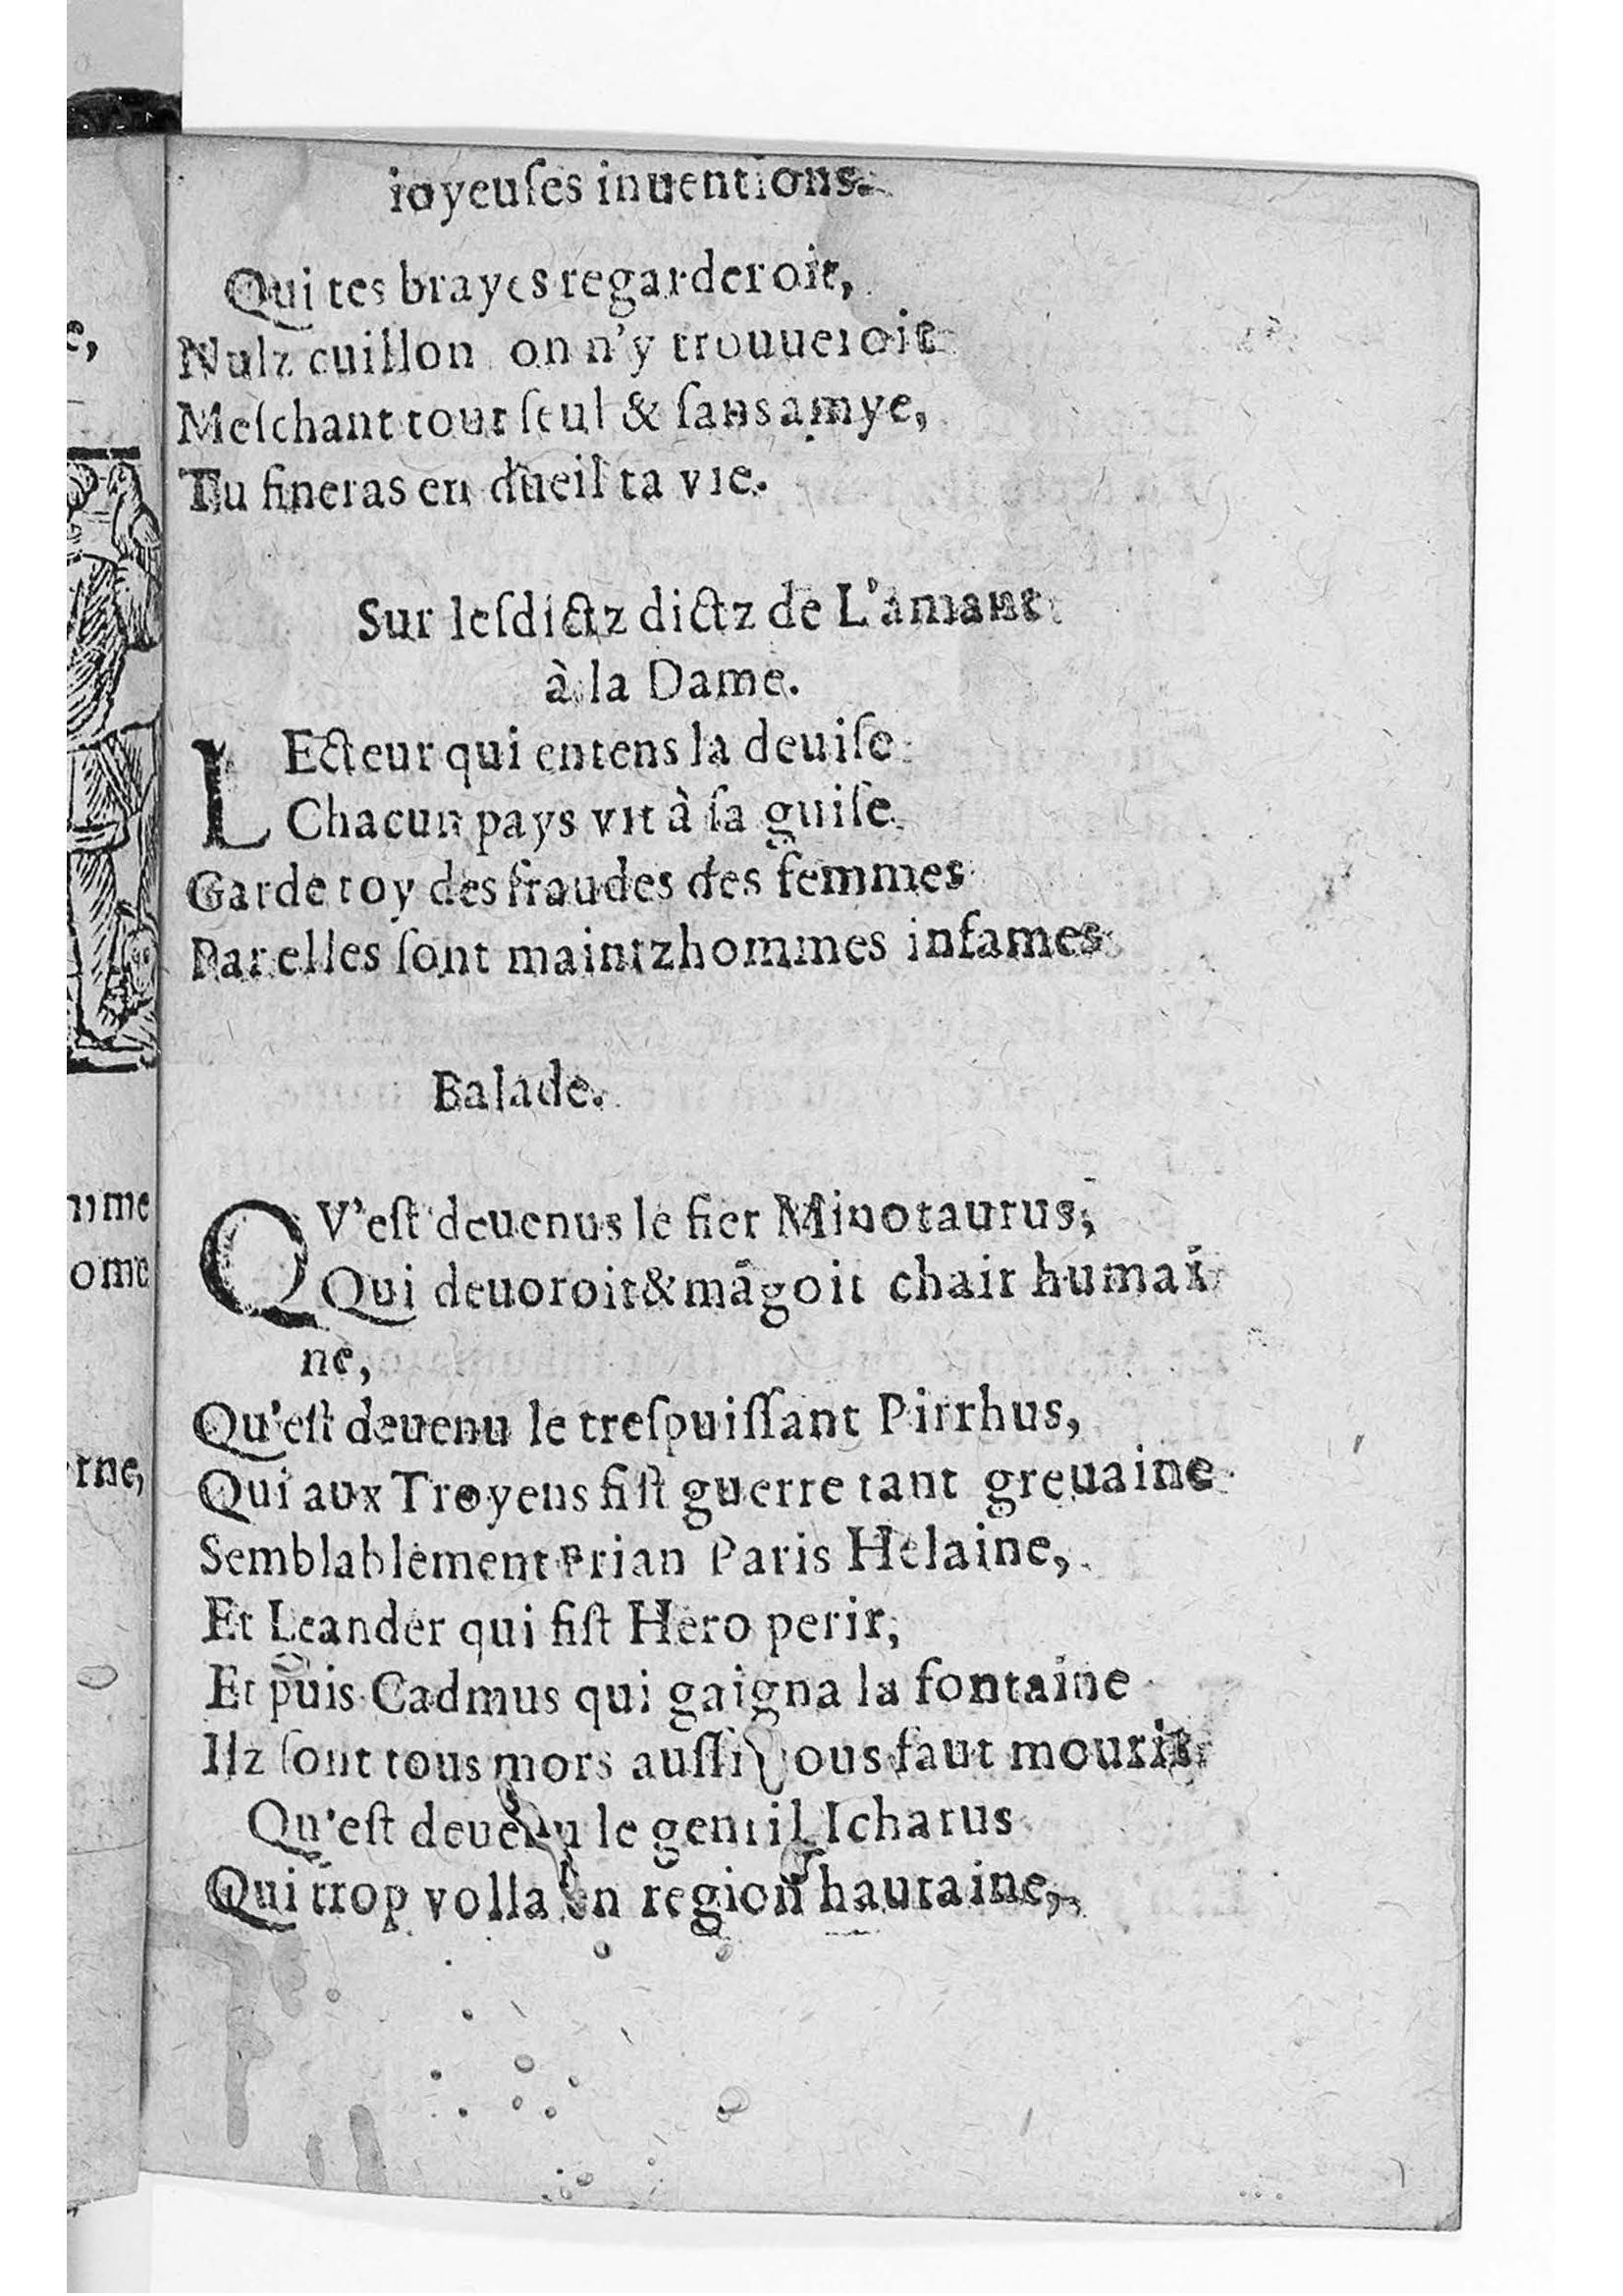 ioyeuſes inuentions.
Qui tes brayes regarderoit,
Nulz cuillon on n'y trouueroit
Meſchant tout ſeul & ſans amye,
Tu fineras en dueil ta vie.
Sur leſdictz dictz de L'amant
à la Dame.
LEcteur qui entens la deuiſe
Chacun pays vit à ſa guiſe
Garde toy des fraudes des femmes
Par elles ſont maintz hommes infames
Balade.
QV'eſt deuenus le fier Minotaurus,
Qui deuoroit & mãgoit chair humai
ne,
Qu'eſt deuenu le treſpuiſſant Pirrhus,
Qui aux Troyens fiſt guerre tant greuaine
Semblablement Prian Paris Helaine,
Et Leander qui fiſt Hero perir,
Et puis Cadmus qui gaigna la fontaine
Ilz ſont tous mors auſſi vous faut mourir
Qu'eſt deuenu le gentil Icharus
Qui trop volla en region hautaine,